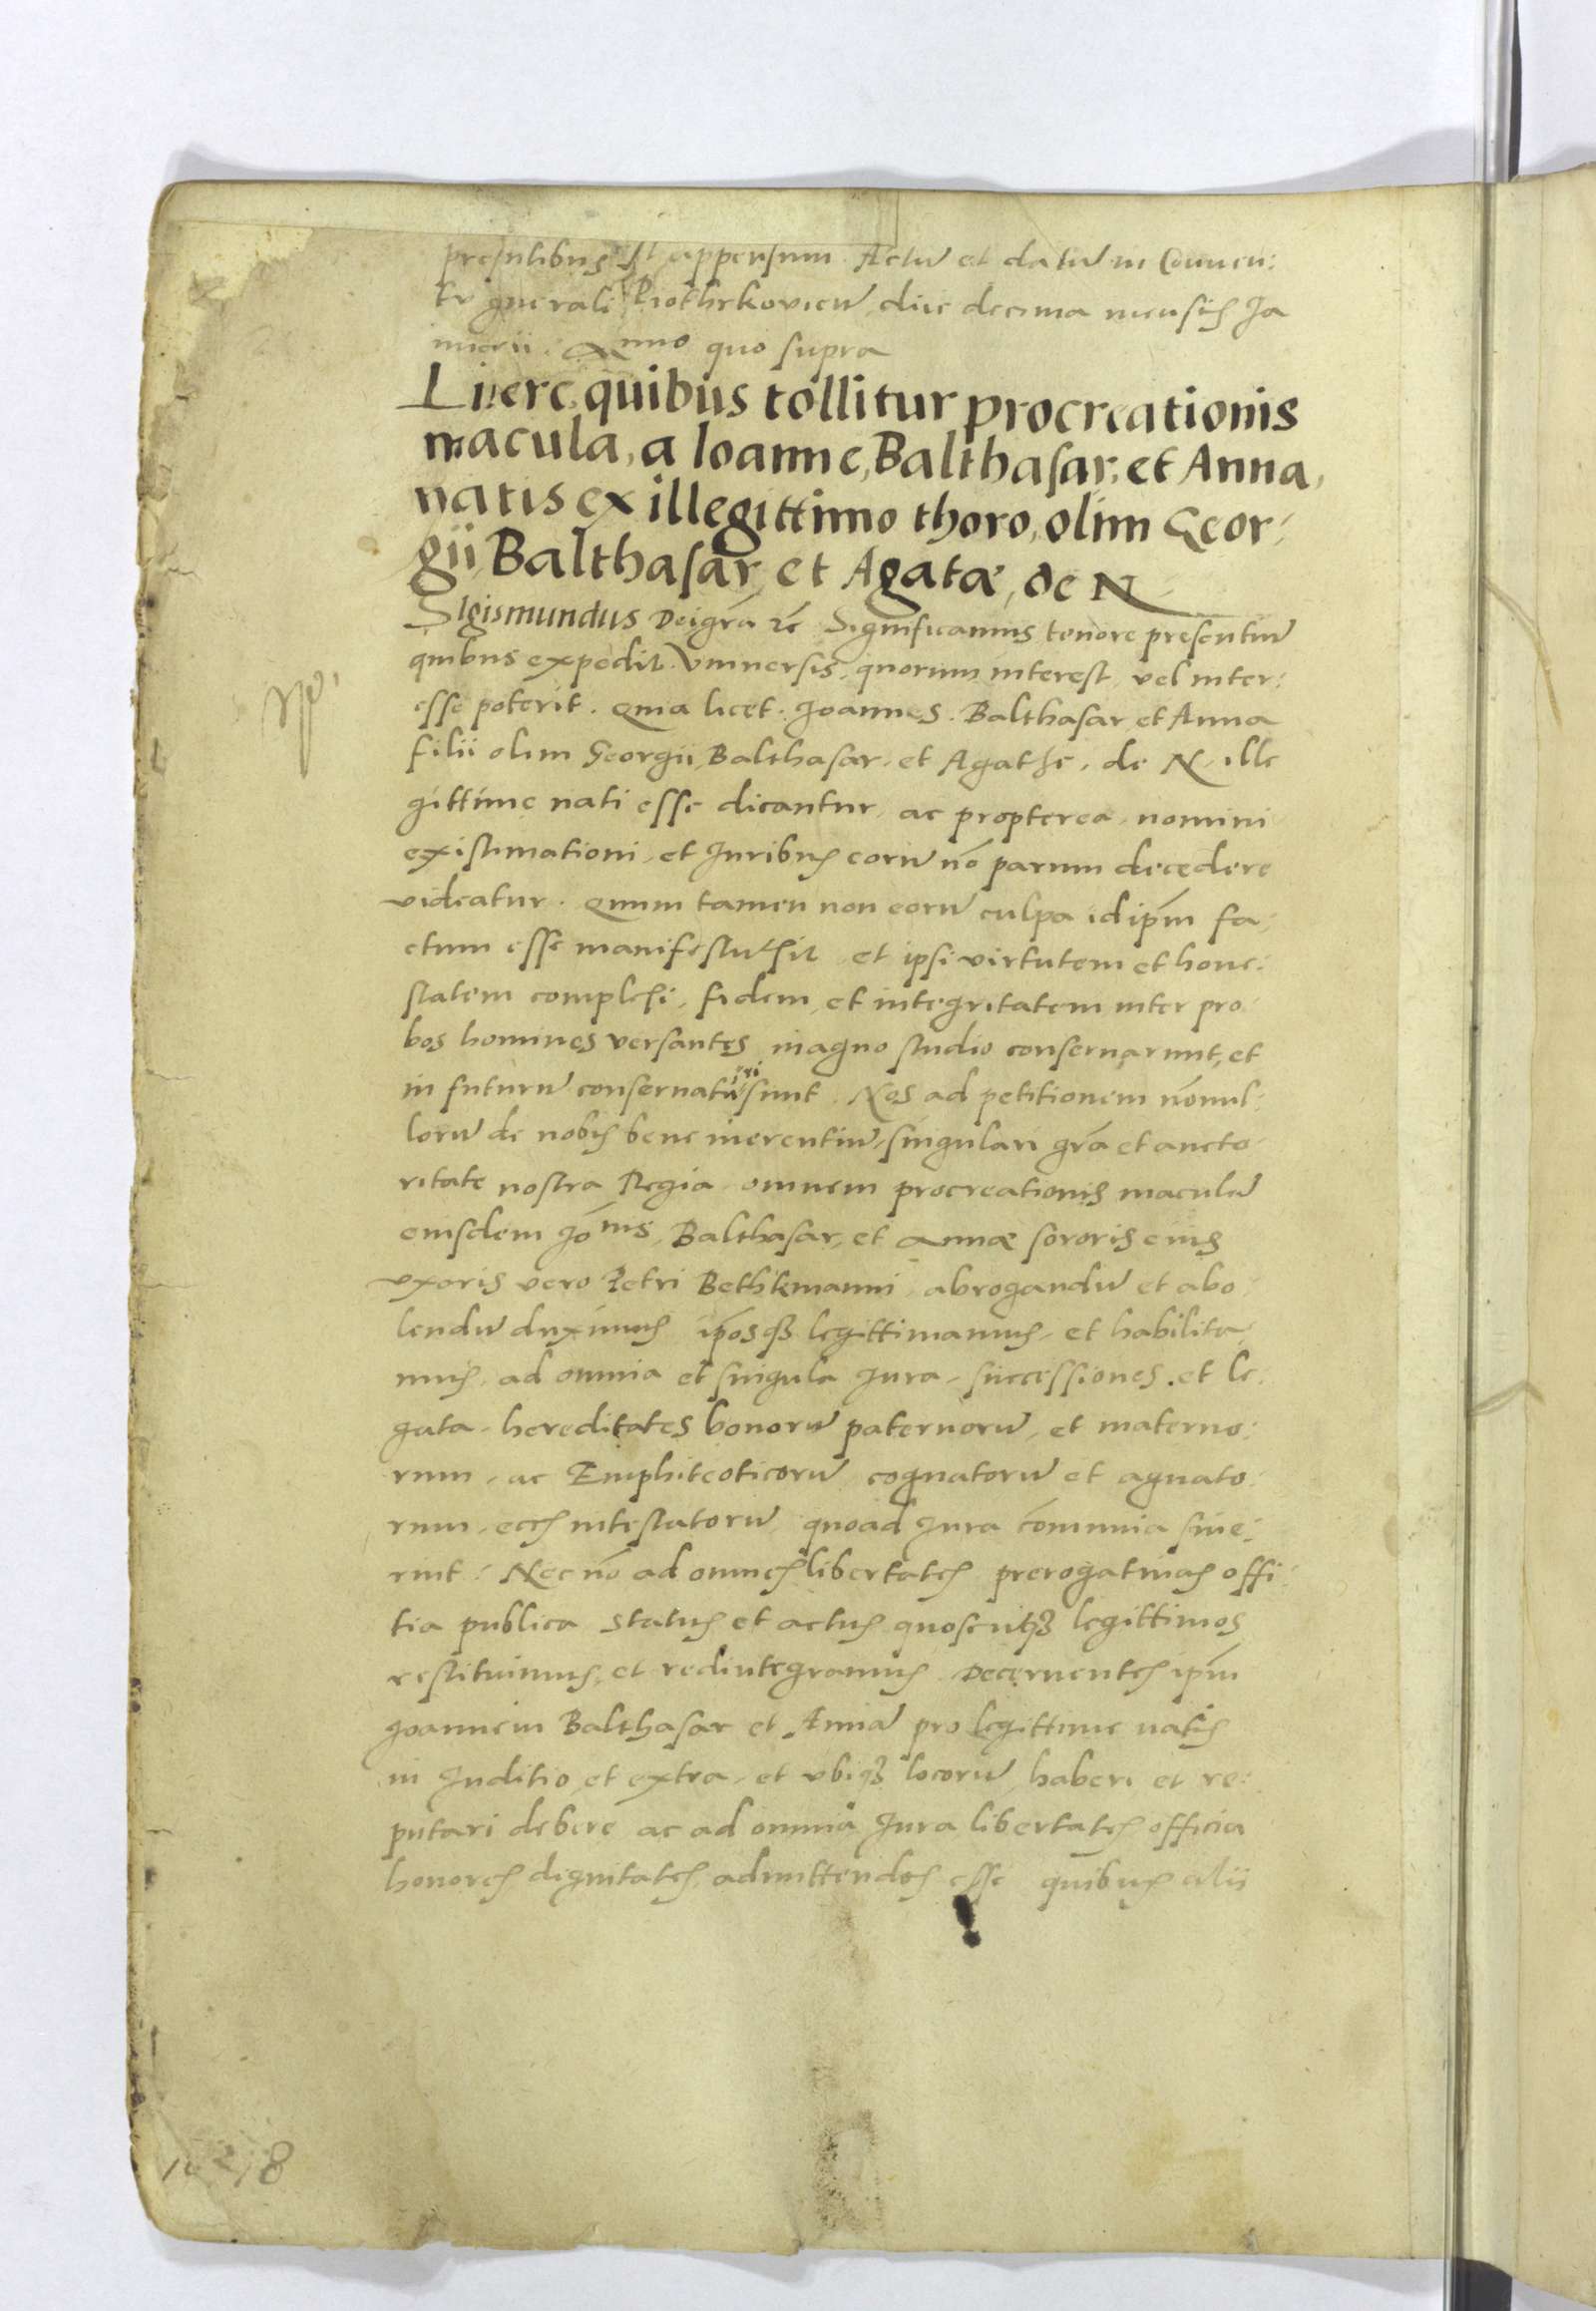 presentibus est appensum. Actũ et datũ in Conven:
tu generali Piothrkovieñ, die decima mensis Ja
nuarii. Anno quo supra
Litterę quibus tollitur procreationis
macula, a Ioanne, Balthasar, et Anna,
natis ex illegittimo thoro, olim Geor-
gii, Balthasar, et Agatæ, de N
Sigismundus Dei grã rc Significamus tenore presentiũ
quibus expedit. Vniuersis, quorum interest, vel inter:
esse poterit. Quia licet. Joannes. Balthasar et Anna
filii olim Georgii, Balthasar, et Agathe, de N. ille
gittime nati esse dicantur, ac propterea, nomini
existimationi, et Juribus eorũ nõ parum decedere
videatur. Quum tamen non eorũ culpa id ipm̃ fa,
ctum esse manifestũ sit, et ipsi virtutem et hone:
statem complexi, fidem, et integritatem inter pro
bos homines versantes, magno studio conseruarunt, et
in futurũ conseruaturi sunt. Nos ad petitionem nõnul:
lorũ de nobis bene merentiũ, singulari grã et aucto
ritate nostra Regia omnem procreationis maculã
eiusdem Jonis, Balthasar, et Annæ sororis eius
vxoris vero Petri Bethkmanni, abrogandũ et abo
lendũ duximus ip̃osq3 legittimamus, et habilita,
mus, ad omnia et singula Jura, successiones, et le:
gata, hereditates bonorũ paternorũ, et materno:
rum, ac Emphiteoticorũ, cognatorũ et agnato:
rum, intestatorũ, quoad Jura cõmunia siue:
rint: Nec nõ ad omnes libertates prerogatiuas offi:
tia publica Status et actus quoscũq3 legittimos
restituimus, et redintegramus. Decernentes ipm̃
Joannem Balthasar et Annã pro legittime natis
in Juditio, et extra, et vbiq3 locorũ, haberi et re:
putari debere ac ad omnia Jura libertates officia
honores dignitates, admittendos esse quibus alii